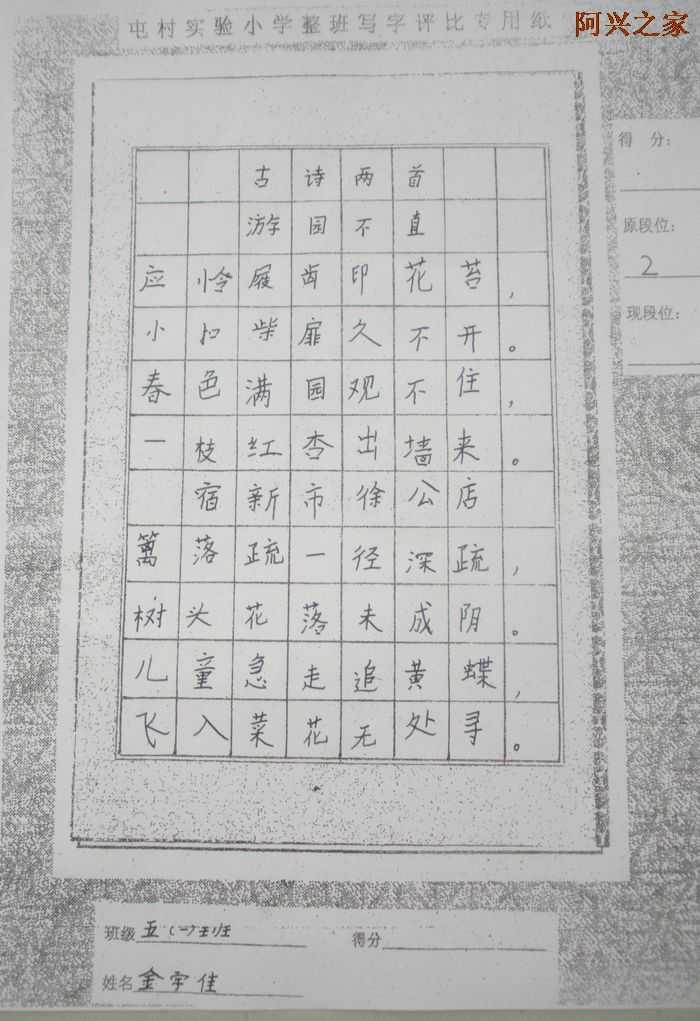 屯村实验小学整班写字评比专用纸
阿兴之家
得 分:
原段位:
2
现段位:
古诗两首
游园不直
应怜屐齿印花苔,
小扣柴扉久不开。
春色满园观不住,
一枝红杏出墙来。
宿新市徐公店
篱落疏一径深疏,
树头花落未成阴。
儿童急走追黄蝶,
飞入菜花无处寻。
班级 五(一)班
得分
姓名 金宇佳